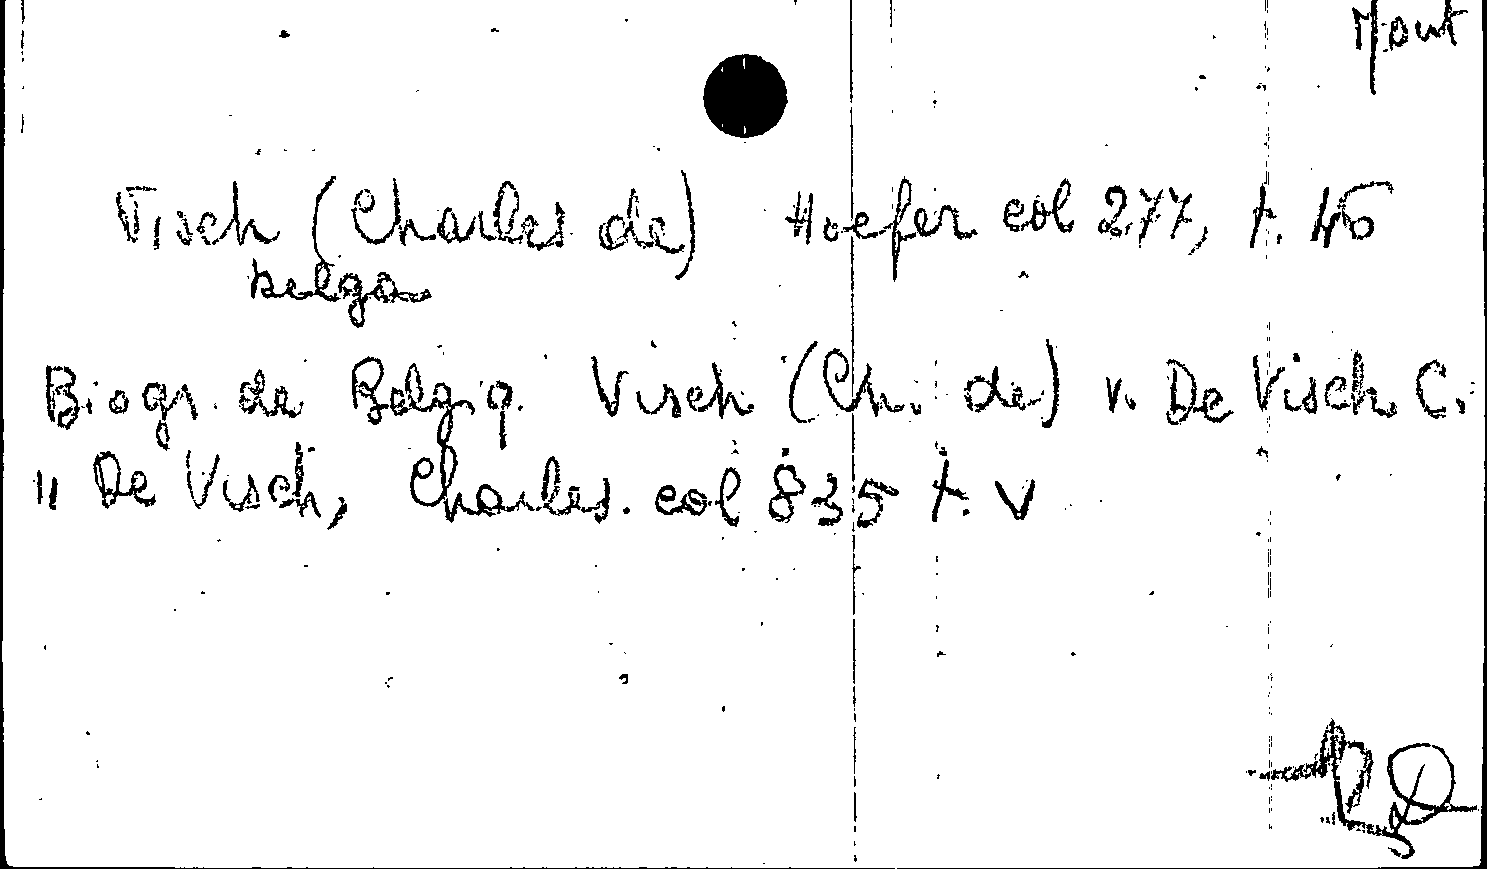 Mont
Visch (Charles de) Hoefer col 277, t. 46
belga
Biogr. de Belgiq. Visch (Ch. de) v. De Visch. C.
" De Visch, Charles. col 835 t. V